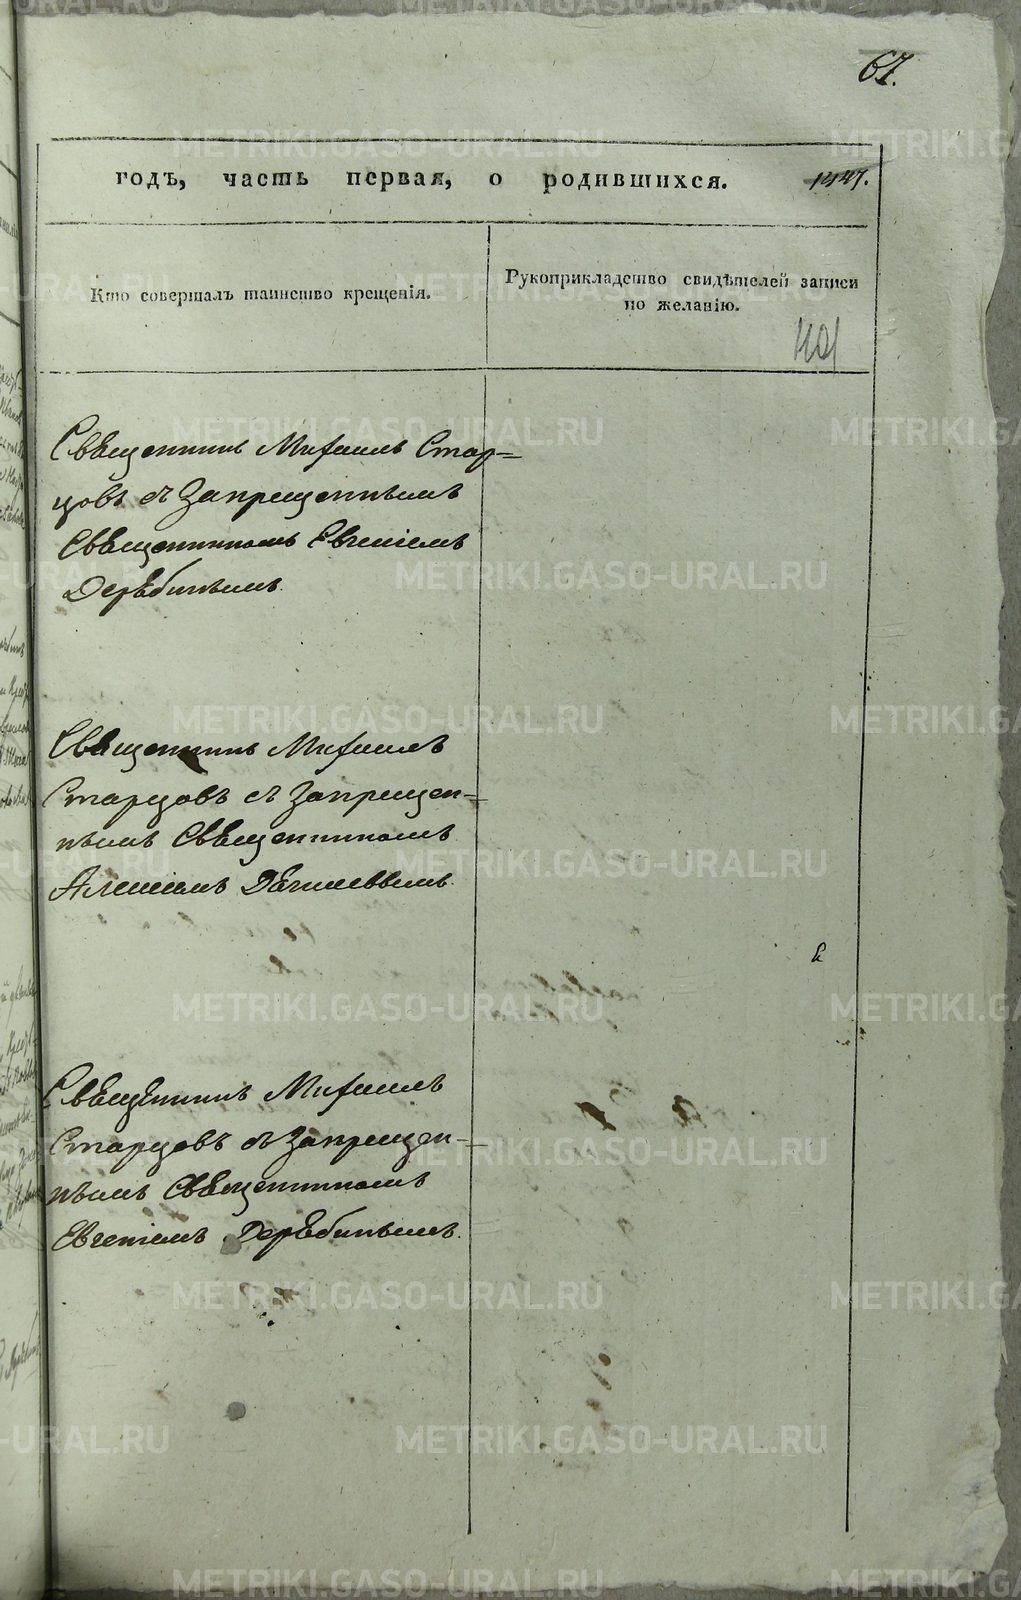 67.
годъ, часть первая, о родившихся.
Кто совершалъ таинство крещенія.
Рукоприкладство свидѣтелей записи
по желанію.
401
Священникъ Михаилъ Стар=
цовъ съ Запрещеннымъ
Священникомъ Евгеніемъ
Дерябинымъ.
Священникъ Михаилъ
Старцовъ съ Запрещен=
нымъ Священникомъ
Алексіемъ
Священникъ Михаилъ
Старцовъ съ Запрещен=
нымъ Священникомъ
Евгеніемъ Дерябинымъ.
METRIKI.GASO-URAL.RU